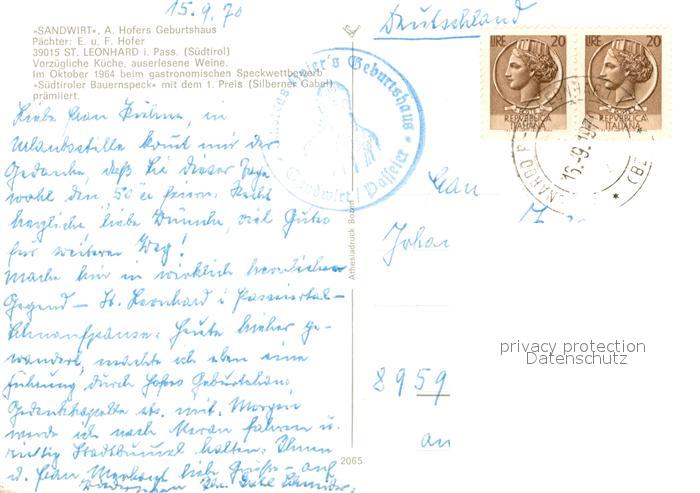 15.9.70
»SANDWIRT«, A. Hofers Geburtshaus
Pächter: E. u. F. Hofer
39015 ST. LEONHARD i. Pass. (Südtirol)
Vorzügliche Küche, auserlesene Weine.
Im Oktober 1964 beim gastronomischen Speckwettbewerb
»Südtiroler Bauernspeck« mit dem 1. Preis (Silberner Gabel)
prämiiert.
Liebe Frau Kühne, in
Urlaubsstelle kommt mir der
Gedanke, daß Sie dieser Tage
wohl den 50. feiern. Recht
herzliche, liebe Wünsche, viel Gutes
für weiteren Weg!
Mache hier in wirklich herrlicher
Gegend – St. Leonhard i Passeiertal –
Heute hieher ge-
wandert, machte ich eben eine
Führung durch Hofers Geburtshaus,
Gedenkkapelle etc. mit. Morgen
werde ich nach Meran fahren u.
richtig Stadtbummel halten. Ihnen
u. Frau liebe Grüße – auf
Wiedersehen Ihr
Geburtshaus * Sandwirt Passeier *
Athesiadruck Bozen
2065
Deutschland
LIRE 20
REPVBBLICA
ITALIANA
LIRE 20
REPVBBLICA
ITALIANA
16.-9.197
Frau
Johan
privacy protection
Datenschutz
8959
an